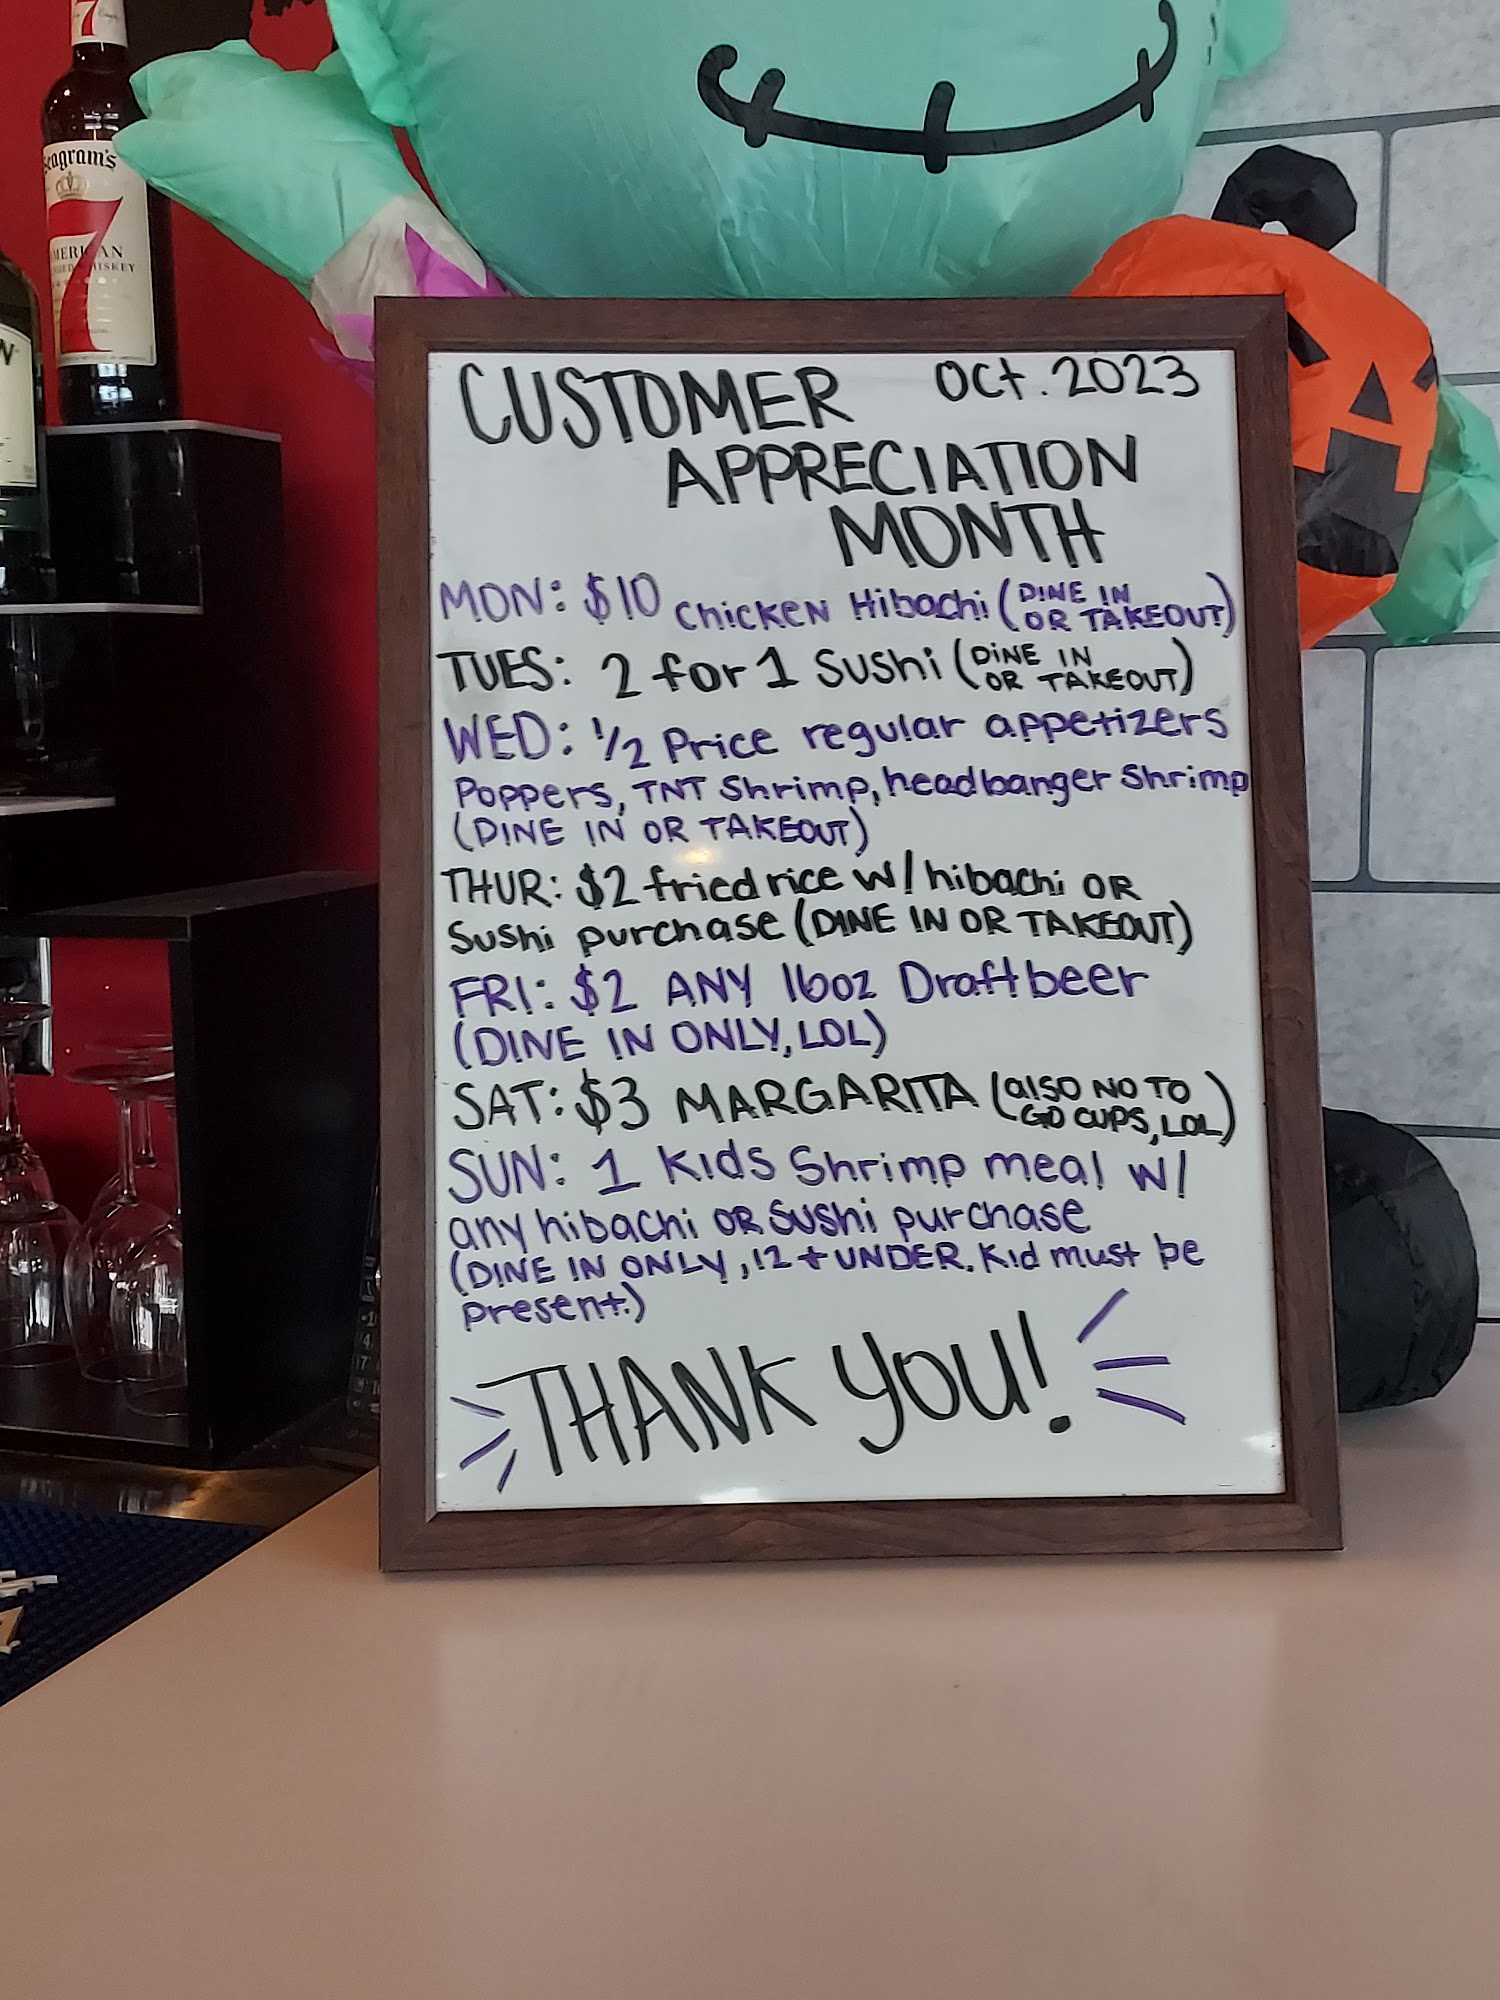 7
Seagram's
7
AMERICAN
WHISKEY
CUSTOMER Oct. 2023
APPRECIATION
MONTH
MON: $10 Chicken Hibachi (DINE IN
OR TAKEOUT)
TUES: 2 for 1 Sushi (DINE IN
OR TAKEOUT)
WED: 1/2 Price regular appetizers
Poppers, TNT Shrimp, headbanger Shrimp
(DINE IN OR TAKEOUT)
THUR: $2 fried rice w/ hibachi OR
Sushi purchase (DINE IN OR TAKEOUT)
FRI: $2 ANY 16oz Draft beer
(DINE IN ONLY, LOL)
SAT: $3 MARGARITA (also NO TO
GO CUPS, LOL)
SUN: 1 Kids Shrimp meal w/
any hibachi OR Sushi purchase
(DINE IN ONLY, 12 + UNDER. Kid must be
present.)
THANK YOU!